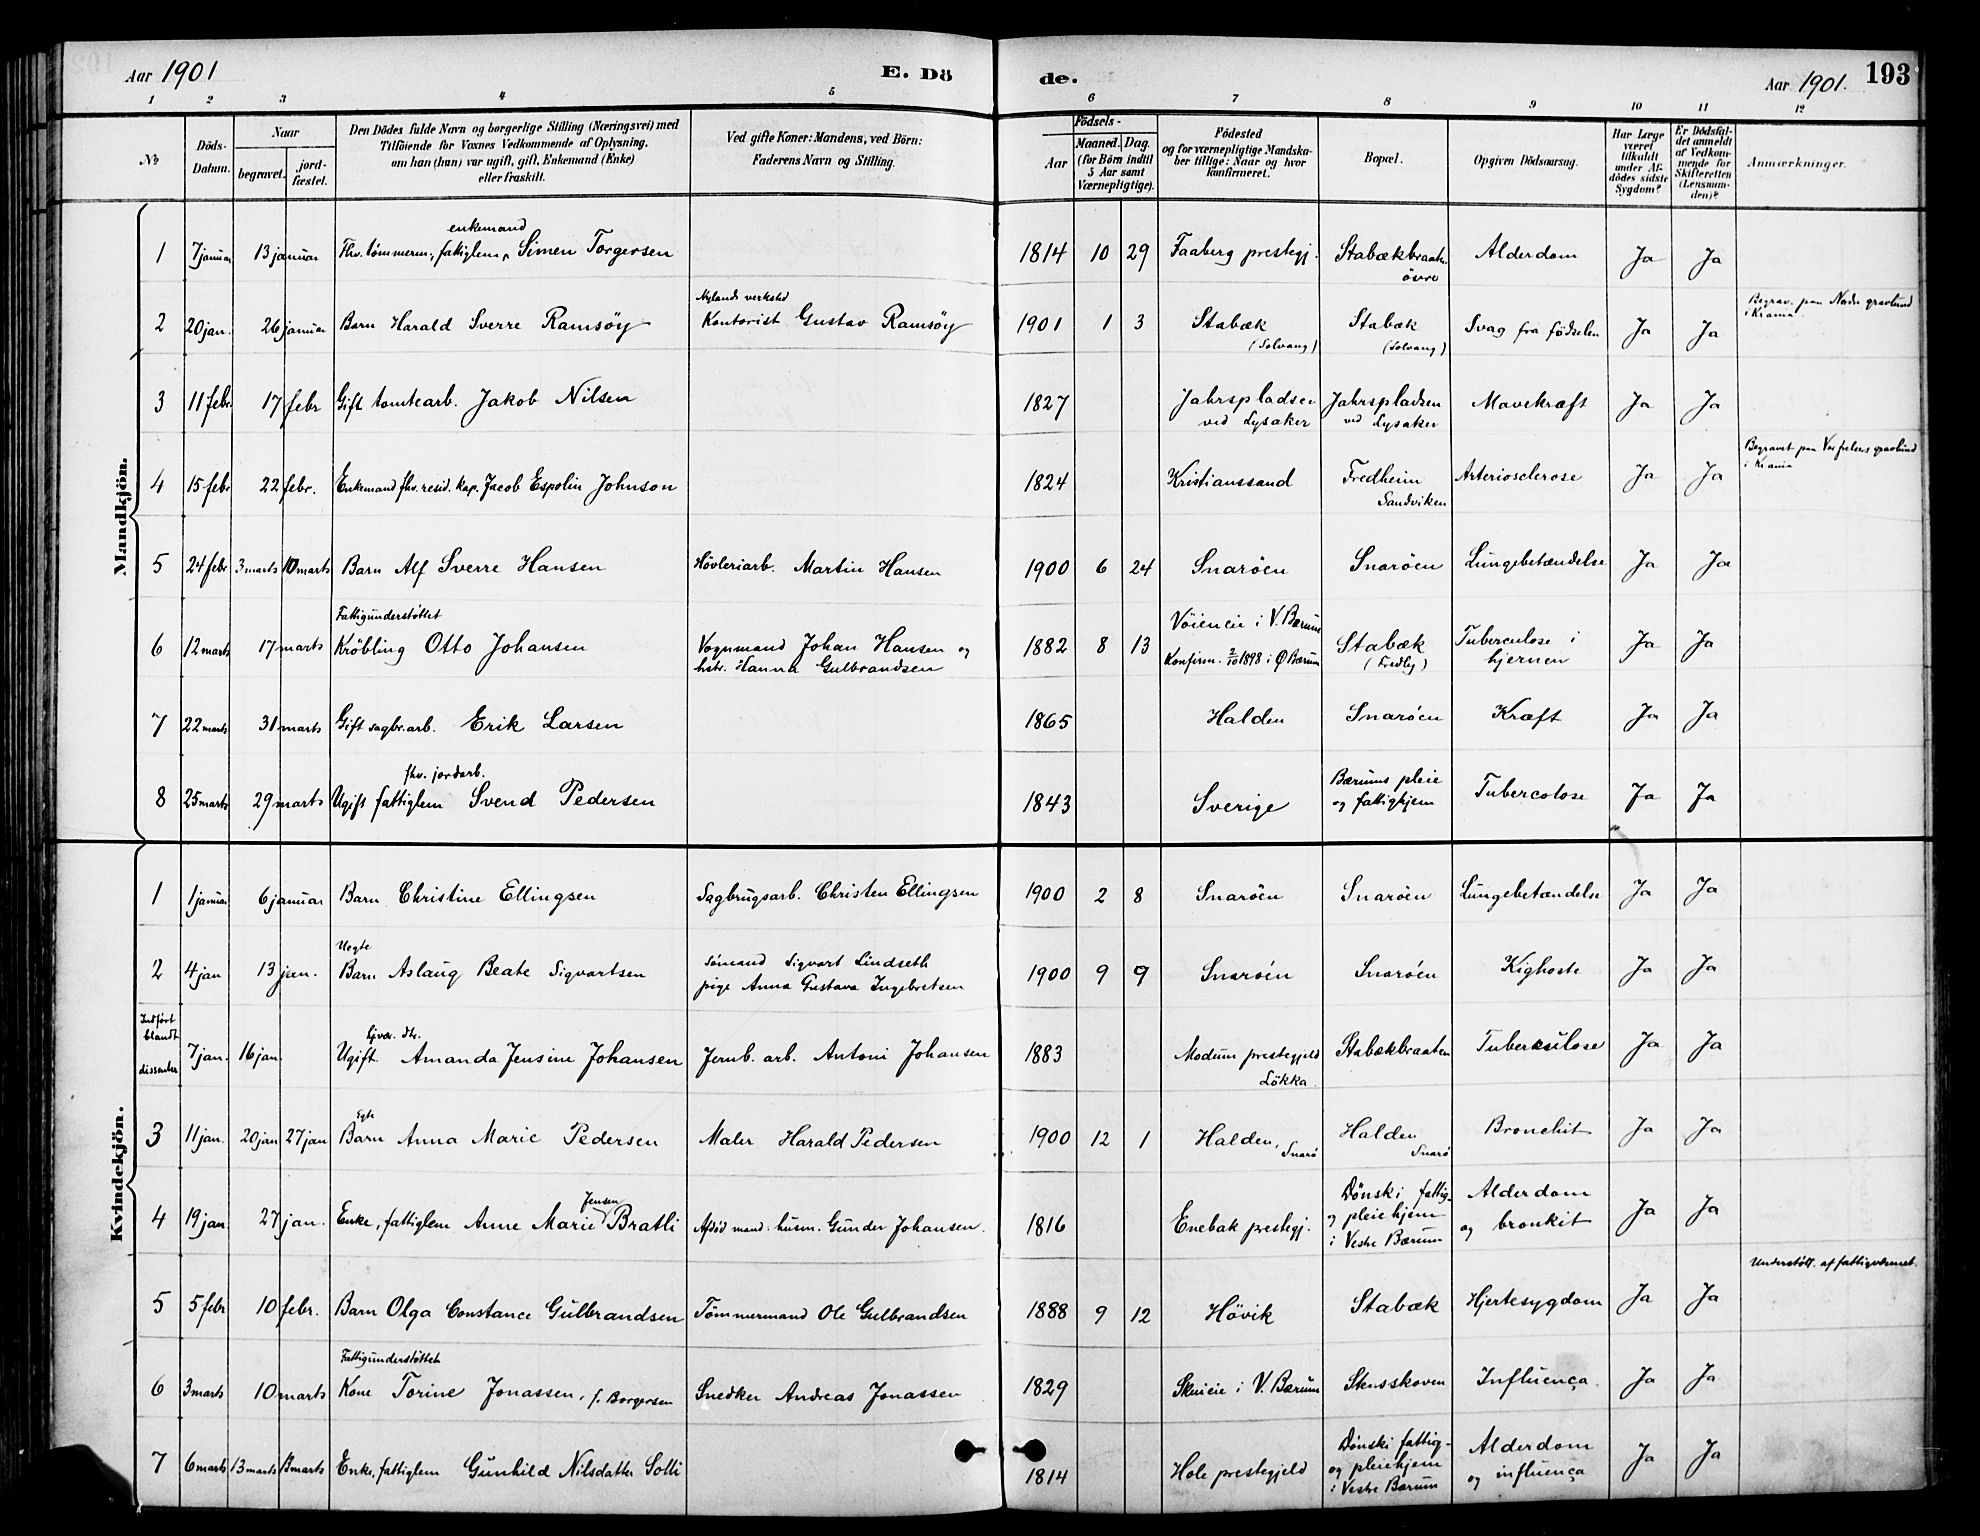 Aar 1901
E. Dö
de.
Aar 1901.
193
1 2 3 4 5 6 7 8 9 10 11 12
No
Döds-Datum.
Naar begravet.
jord-fæstet.
Den Dödes fulde Navn og borgerlige Stilling (Næringsvei) med
Tilföiende for Voxnes Vedkommende af Oplysning,
om han (hun) var ugift, gift, Enkemand (Enke)
eller fraskilt.
Ved gifte Koner: Mandens, ved Börn:
Faderens Navn og Stilling.
Födsels-
Aar
Maaned. Dag.
(for Börn indtil
5 Aar samt
Værnepligtige).
Födested
og for værnepligtige Mandska-
ber tillige: Naar og hvor
konfirmeret.
Bopæl.
Opgiven Dödsaarsag.
Har Læge
været
tilkaldt
under Af-
dödes sidste
Sygdom?
Er Dödsfal-
det anmeldt
af Vedkom-
mende for
Skifteretten
(Lensman-
den)?
Anmærkninger.
Mandkjön.
enkemand
1 7 januar 13 januar Fhv. tømmerm., fattiglem, Simen Torgersen 1814 10 29 Faaberg prestegj. Stabækbraaten Alderdom Ja Ja
övre
Nylands verksted
Begrav. paa Nordre gravlund
i Krania.
2 20 jan. 26 januar Barn Harald Sverre Ramsöy Kontorist Gustav Ramsöy 1901 1 3 Stabæk Stabæk Svag fra födselen Ja Ja
(Solvang) (Solvang)
3 11 febr. 17 febr Gift tomtearb. Jakob Nilsen 1827 Jahrspladsen Jahrspladsen Mavekræft Ja Ja
ved Lysaker ved Lysaker
Begravet paa Vor frelsers gravlund
i Krania
4 15 febr 22 febr. Enkemand fhv. resid. kap. Jacob Espolin Johnson 1824 Kristianssand Fredheim Arteriosclerose Ja Ja
Sandviken
5 24 febr 3 marts 10 marts Barn Alf Sverre Hansen Høvleriarb. Martin Hansen 1900 6 24 Snaröen Snaröen Lungebetændelse Ja Ja
Fattigunderstøttet
Vöieneie i V. Bærum
6 12 marts 17 marts Kröbling Otto Johansen Vognmand Johan Hansen og 1882 8 13 Stabæk Tuberculose i Ja Ja
hstr. Hanna Gulbrandsen Konfirm. 2/10 1898 i Ø Bærum (Fredly) hjernen
7 22 marts 31 marts Gift sagbr. arb. Erik Larsen 1865 Halden Snaröen Kræft Ja Ja
fhv. jordarb.
8 25 marts 29 marts Ugift fattiglem Svend Pedersen 1843 Sverige Bærums pleie Tubercolose Ja Ja
og fattighjem
Kvindekjön.
1 1 januar 6 januar Barn Christine Ellingsen Sagbrugsarb. Christen Ellingsen 1900 2 8 Snaröen Snaröen Lungebetændelse Ja Ja
Uegte
2 4 jan 13 jan. Barn Aslaug Beate Sigvartsen Sömand Sigvart Lindseth 1900 9 9 Snaröen Snaröen Kighoste Ja Ja
pige Anna Gustava Ingebretsen
Indført
blandt
dissenter
7 jan. 16 jan. Ugift. Amanda Jensine Johansen Jernb. arb. Antoni Johansen 1883 Modum prestegjeld Stabækbraaten Tuberculose Ja Ja
Lökka
Egte
3 11 jan. 20 jan 27 jan Barn Anna Marie Pedersen Maler Harald Pedersen 1900 12 1 Halden, Snarö Halden Snarö Bronchit Ja Ja
Jensen
4 19 jan. 27 jan. Enke, fattiglem Anne Marie Bratli Afdød mand: husm. Gunder Johansen. 1816 Enebak prestegj. Dönski fattig- Alderdom Ja Ja
og pleiehjem og bronkit
i Vestre Bærum
Understött. af fattigvæsenet.
5 5 febr 10 febr. Barn Olga Constance Gulbrandsen Tömmermand Ole Gulbrandsen 1888 9 12 Hövik Stabæk Hjertesygdom Ja Ja
Fattigunderstöttet
6 3 marts 10 marts Kone Torine Jonassen, f. Borgersen Snedker Andreas Jonassen 1829 Skuieie i V. Bærum Stensskoven Influença. Ja Ja
7 6 marts 13 marts 13 marts Enke, fattiglem Gunhild Nilsdatter Solli 1814 Hole prestegjeld Dönski fattig- Alderdom Ja Ja
og pleiehjem og influença
i Vestre Bærum